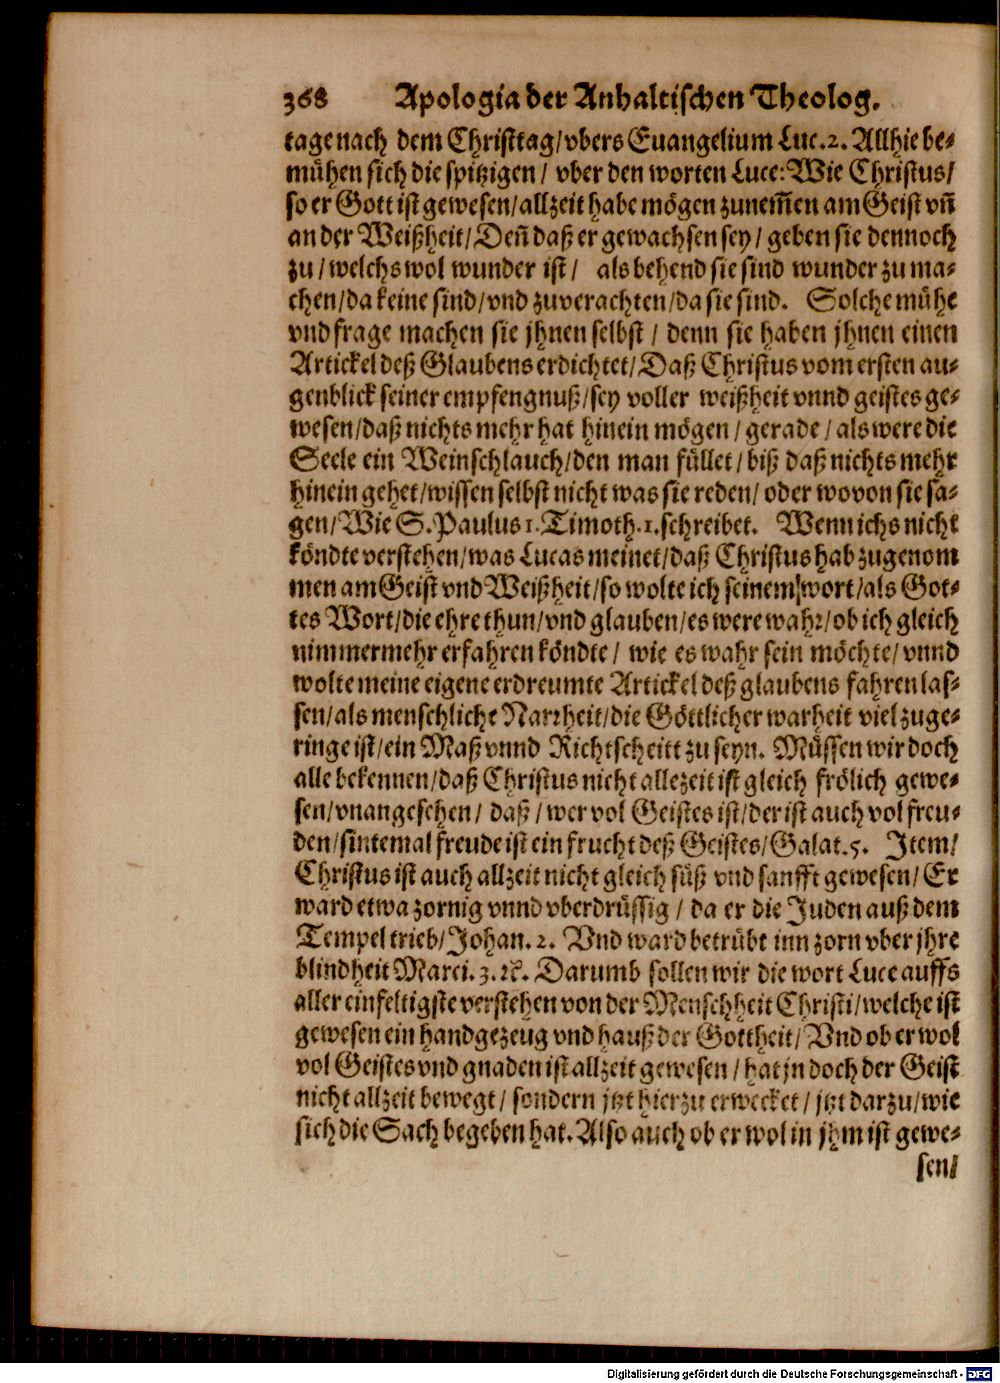 368 Apologia der Anhaltischen Theolog.
tage nach dem Christtag/ vbers Euangelium Luc. 2. Allhie be-
mühen sich die spitzigen/ vber den worten Luce: Wie Christus/
so er Gott ist gewesen/ allzeit habe mögen zunem̃en am Geist vñ
an der Weißheit/ Deñ daß er gewachsen sey/ geben sie dennoch
zu/ welchs wol wunder ist/ als behend sie sind wunder zu ma-
chen/ da keine sind/ vnd zuverachten/ da sie sind. Solche mühe
vnd frage machen sie jhnen selbst/ denn sie haben jhnen einen
Artickel deß Glaubens erdichtet/ Daß Christus vom ersten au-
genblick seiner empfengnuß/ sey voller weißheit vnnd geistes ge-
wesen/ daß nichts mehr hat hinein mögen/ gerade/ als were die
Seele ein Weinschlauch/ den man füllet/ biß daß nichts mehr
hinein gehet/ wissen selbst nicht was sie reden/ oder wovon sie sa-
gen/ Wie S. Paulus 1. Timoth. 1. schreibet. Wenn ichs nicht
köndte verstehen/ was Lucas meinet/ daß Christus hab zugenom
men am Geist vnd Weißheit/ so wolte ich seinem wort/ als Got-
tes Wort/ die ehre thun/ vnd glauben/ es were wahr/ ob ich gleich
nimmermehr erfahren köndte/ wie es wahr sein möchte/ vnnd
wolte meine eigene erdreumte Artickel deß glaubens fahren las-
sen/ als menschliche Narrheit/ die Göttlicher warheit viel zuge-
ringe ist/ ein Maß vnnd Richtscheitt zu seyn. Müssen wir doch
alle bekennen/ daß Christus nicht allezeit ist gleich frölich gewe-
sen/ vnangesehen/ daß/ wer vol Geistes ist/ der ist auch vol freu-
den/ sintemal freude ist ein frucht deß Geistes/ Galat. 5. Item/
Christus ist auch allzeit nicht gleich süß vnd sanfft gewesen/ Er
ward etwa zornig vnnd vberdrüssig/ da er die Juden auß dem
Tempel trieb/ Johan. 2. Vnd ward betrübt inn zorn vber jhre
blindheit Marci. 3. ꝛc. Darumb sollen wir die wort Luce auffs
aller einfeltigste verstehen von der Menschheit Christi/ welche ist
gewesen ein handgezeug vnd hauß der Gottheit/ Vnd ob er wol
vol Geistes vnd gnaden ist allzeit gewesen/ hat jn doch der Geist
nicht allzeit bewegt/ sondern jtzt hierzu erwecket/ jtzt darzu/ wie
sich die Sach begeben hat. Also auch ob er wol in jhm ist gewe-
sen/
Digitalisierung gefördert durch die Deutsche Forschungsgemeinschaft - DFG